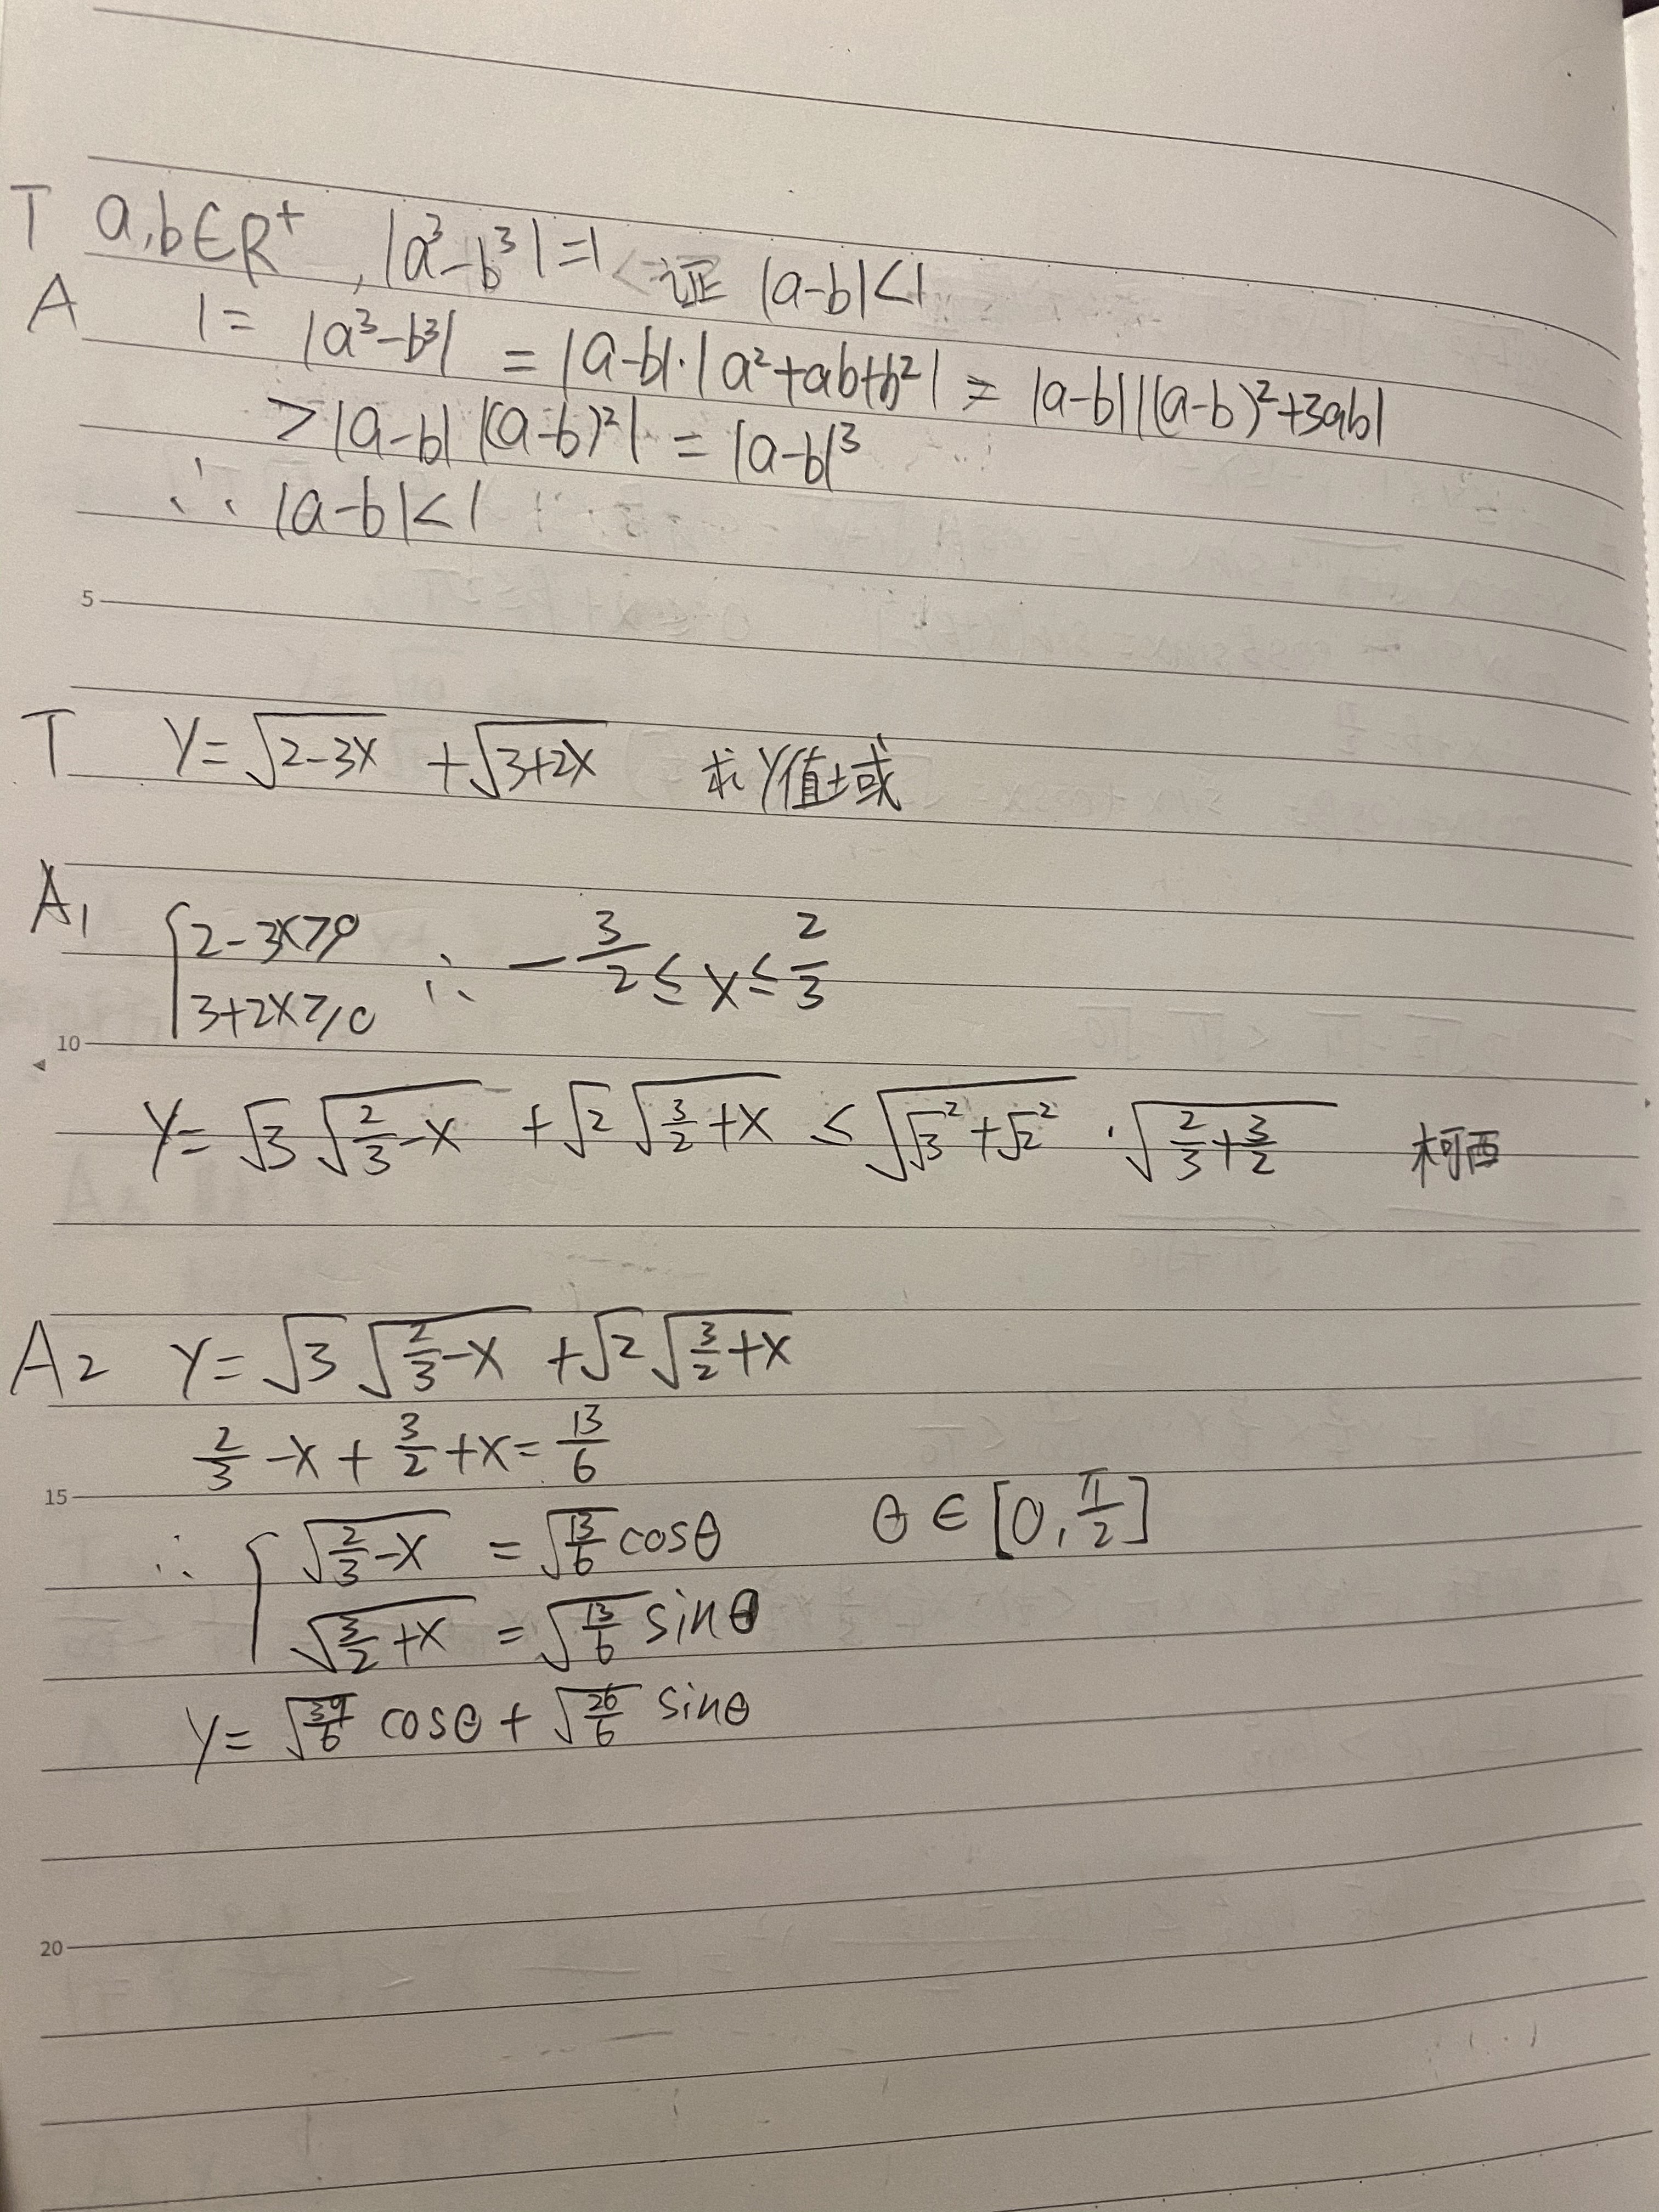 T a,b∈R⁺, |a³-b³|=1 证 |a-b|<1
A 1= |a³-b³| = |a-b|·|a²+ab+b²| = |a-b||(a-b)²+3ab|
>|a-b| |(a-b)²| = |a-b|³
∴ |a-b|<1
5
T Y=√(2-3x) +√(3+2x) 求Y值域
A₁ { 2-3x≥0
3+2x≥0 ∴ -3/2 ≤ x ≤ 2/3
10
Y= √3 √(2/3-x) +√2 √(3/2+x) ≤ √(√3²+√2²) · √(2/3+3/2) 柯西
A₂ Y= √3 √(2/3-x) +√2 √(3/2+x)
2/3 -x + 3/2 +x= 13/6
15
∴ { √(2/3-x) = √(13/6) cosθ θ∈[0, π/2]
√(3/2+x) = √(13/6) sinθ
Y= √(39/6) cosθ + √(26/6) sinθ
20